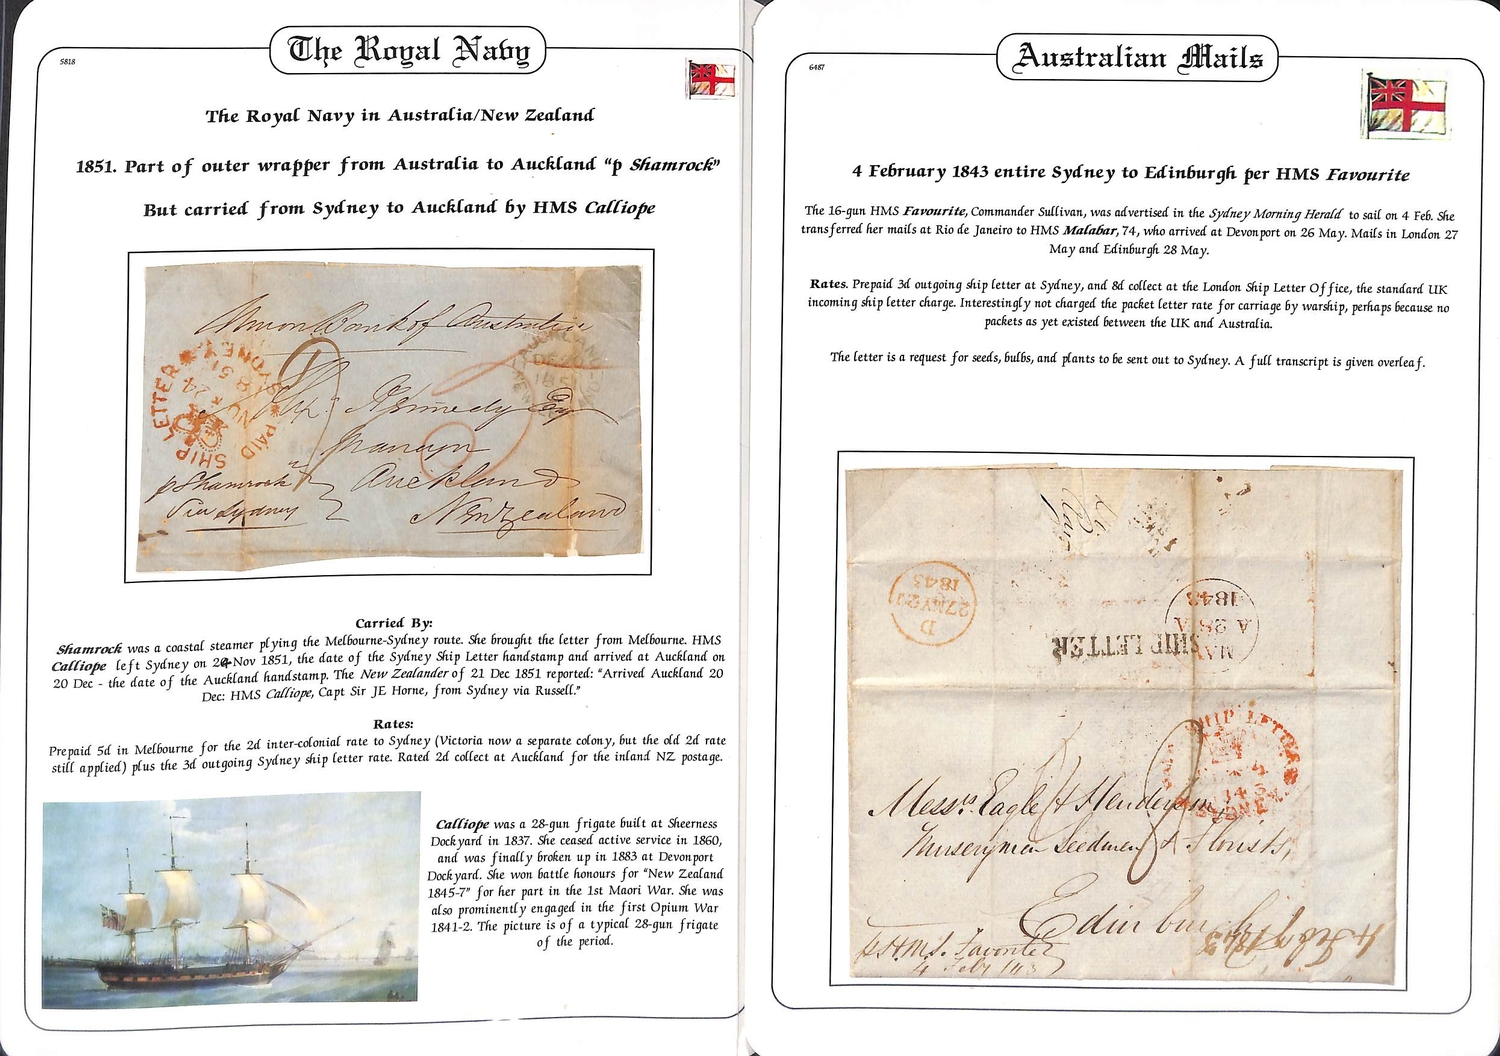 The Royal Navy
5818
The Royal Navy in Australia/New Zealand
1851. Part of outer wrapper from Australia to Auckland “p Shamrock”
But carried from Sydney to Auckland by HMS Calliope
Union Bank of Australia
AUCKLAND
SHIP LETTER * SYDNEY * PAID
Kennedy Esq
Auckland
New Zealand
p Shamrock
Via Sydney
Carried By:
Shamrock was a coastal steamer plying the Melbourne-Sydney route. She brought the letter from Melbourne. HMS
Calliope left Sydney on 24 Nov 1851, the date of the Sydney Ship Letter handstamp and arrived at Auckland on
20 Dec - the date of the Auckland handstamp. The New Zealander of 21 Dec 1851 reported: “Arrived Auckland 20
Dec: HMS Calliope, Capt Sir JE Horne, from Sydney via Russell.”
Rates:
Prepaid 5d in Melbourne for the 2d inter-colonial rate to Sydney (Victoria now a separate colony, but the old 2d rate
still applied) plus the 3d outgoing Sydney ship letter rate. Rated 2d collect at Auckland for the inland NZ postage.
Calliope was a 28-gun frigate built at Sheerness
Dockyard in 1837. She ceased active service in 1860,
and was finally broken up in 1883 at Devonport
Dockyard. She won battle honours for “New Zealand
1845-7” for her part in the 1st Maori War. She was
also prominently engaged in the first Opium War
1841-2. The picture is of a typical 28-gun frigate
of the period.
Australian Mails
6487
4 February 1843 entire Sydney to Edinburgh per HMS Favourite
The 16-gun HMS Favourite, Commander Sullivan, was advertised in the Sydney Morning Herald to sail on 4 Feb. She
transferred her mails at Rio de Janeiro to HMS Malabar, 74, who arrived at Devonport on 26 May. Mails in London 27
May and Edinburgh 28 May.
Rates. Prepaid 3d outgoing ship letter at Sydney, and 8d collect at the London Ship Letter Office, the standard UK
incoming ship letter charge. Interestingly not charged the packet letter rate for carriage by warship, perhaps because no
packets as yet existed between the UK and Australia.
The letter is a request for seeds, bulbs, and plants to be sent out to Sydney. A full transcript is given overleaf.
D
27 MY 27
1843
MAY
A 28 A
1843
SHIP LETTER
SHIP LETTER
SYDNEY
Messrs. Eagle & Henderson
Nurserymen Seedsmen & Florists,
Edinburgh
p H.M.S. Favorite
4 Feby 1843